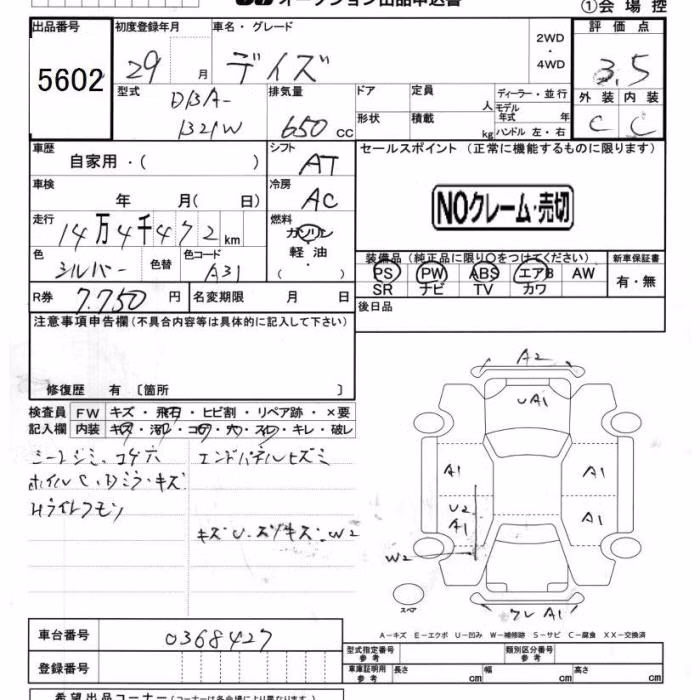 オークション出品申込書
①会場控
出品番号 初度登録年月 車名・グレード 評価点
5602 29 月 デイズ 2WD・4WD 3.5
型式 排気量 ドア 定員 人 ディーラー・並行 外装 内装
DBA-B21W 650 CC 形状 積載 kg モデル年式 年 ハンドル 左・右 C C
車歴 シフト セールスポイント (正常に機能するものに限ります)
自家用・( ) AT
車検 冷房 NOクレーム・売切
年 月( 日) AC
走行 燃料
14万4千472km ガソリン
色 色替 色コード 軽油 装備品 (純正品に限り○をつけてください) 新車保証書
シルバー A31 ・( ) PS PW ABS エアB AW 有・無
SR ナビ TV カワ
R券 7.750 円 名変期限 月 日 後日品
注意事項申告欄 (不具合内容等は具体的に記入して下さい)
修復歴 有 〔箇所 〕
検査員 FW キズ・飛石・ヒビ割・リペア跡・×要
記入欄 内装 キズ・汚れ・コゲ・穴・スレ・キレ・破レ
シートシミ、コゲ穴 エンドパネルヒズミ
ホイルC、Dミラーキズ
Hライト
キズU・W2
A2
UA1
A1 A1
U2
A1 A1
W2
スペア
A1
A-キズ E-エクボ U-凹み W-補修跡 S-サビ C-腐食 XX-交換済
車台番号 0368427
型式指定番号 参考 類別区分番号 参考
登録番号
車庫証明用 参考 長さ cm 幅 cm 高さ cm
希望出品コーナー